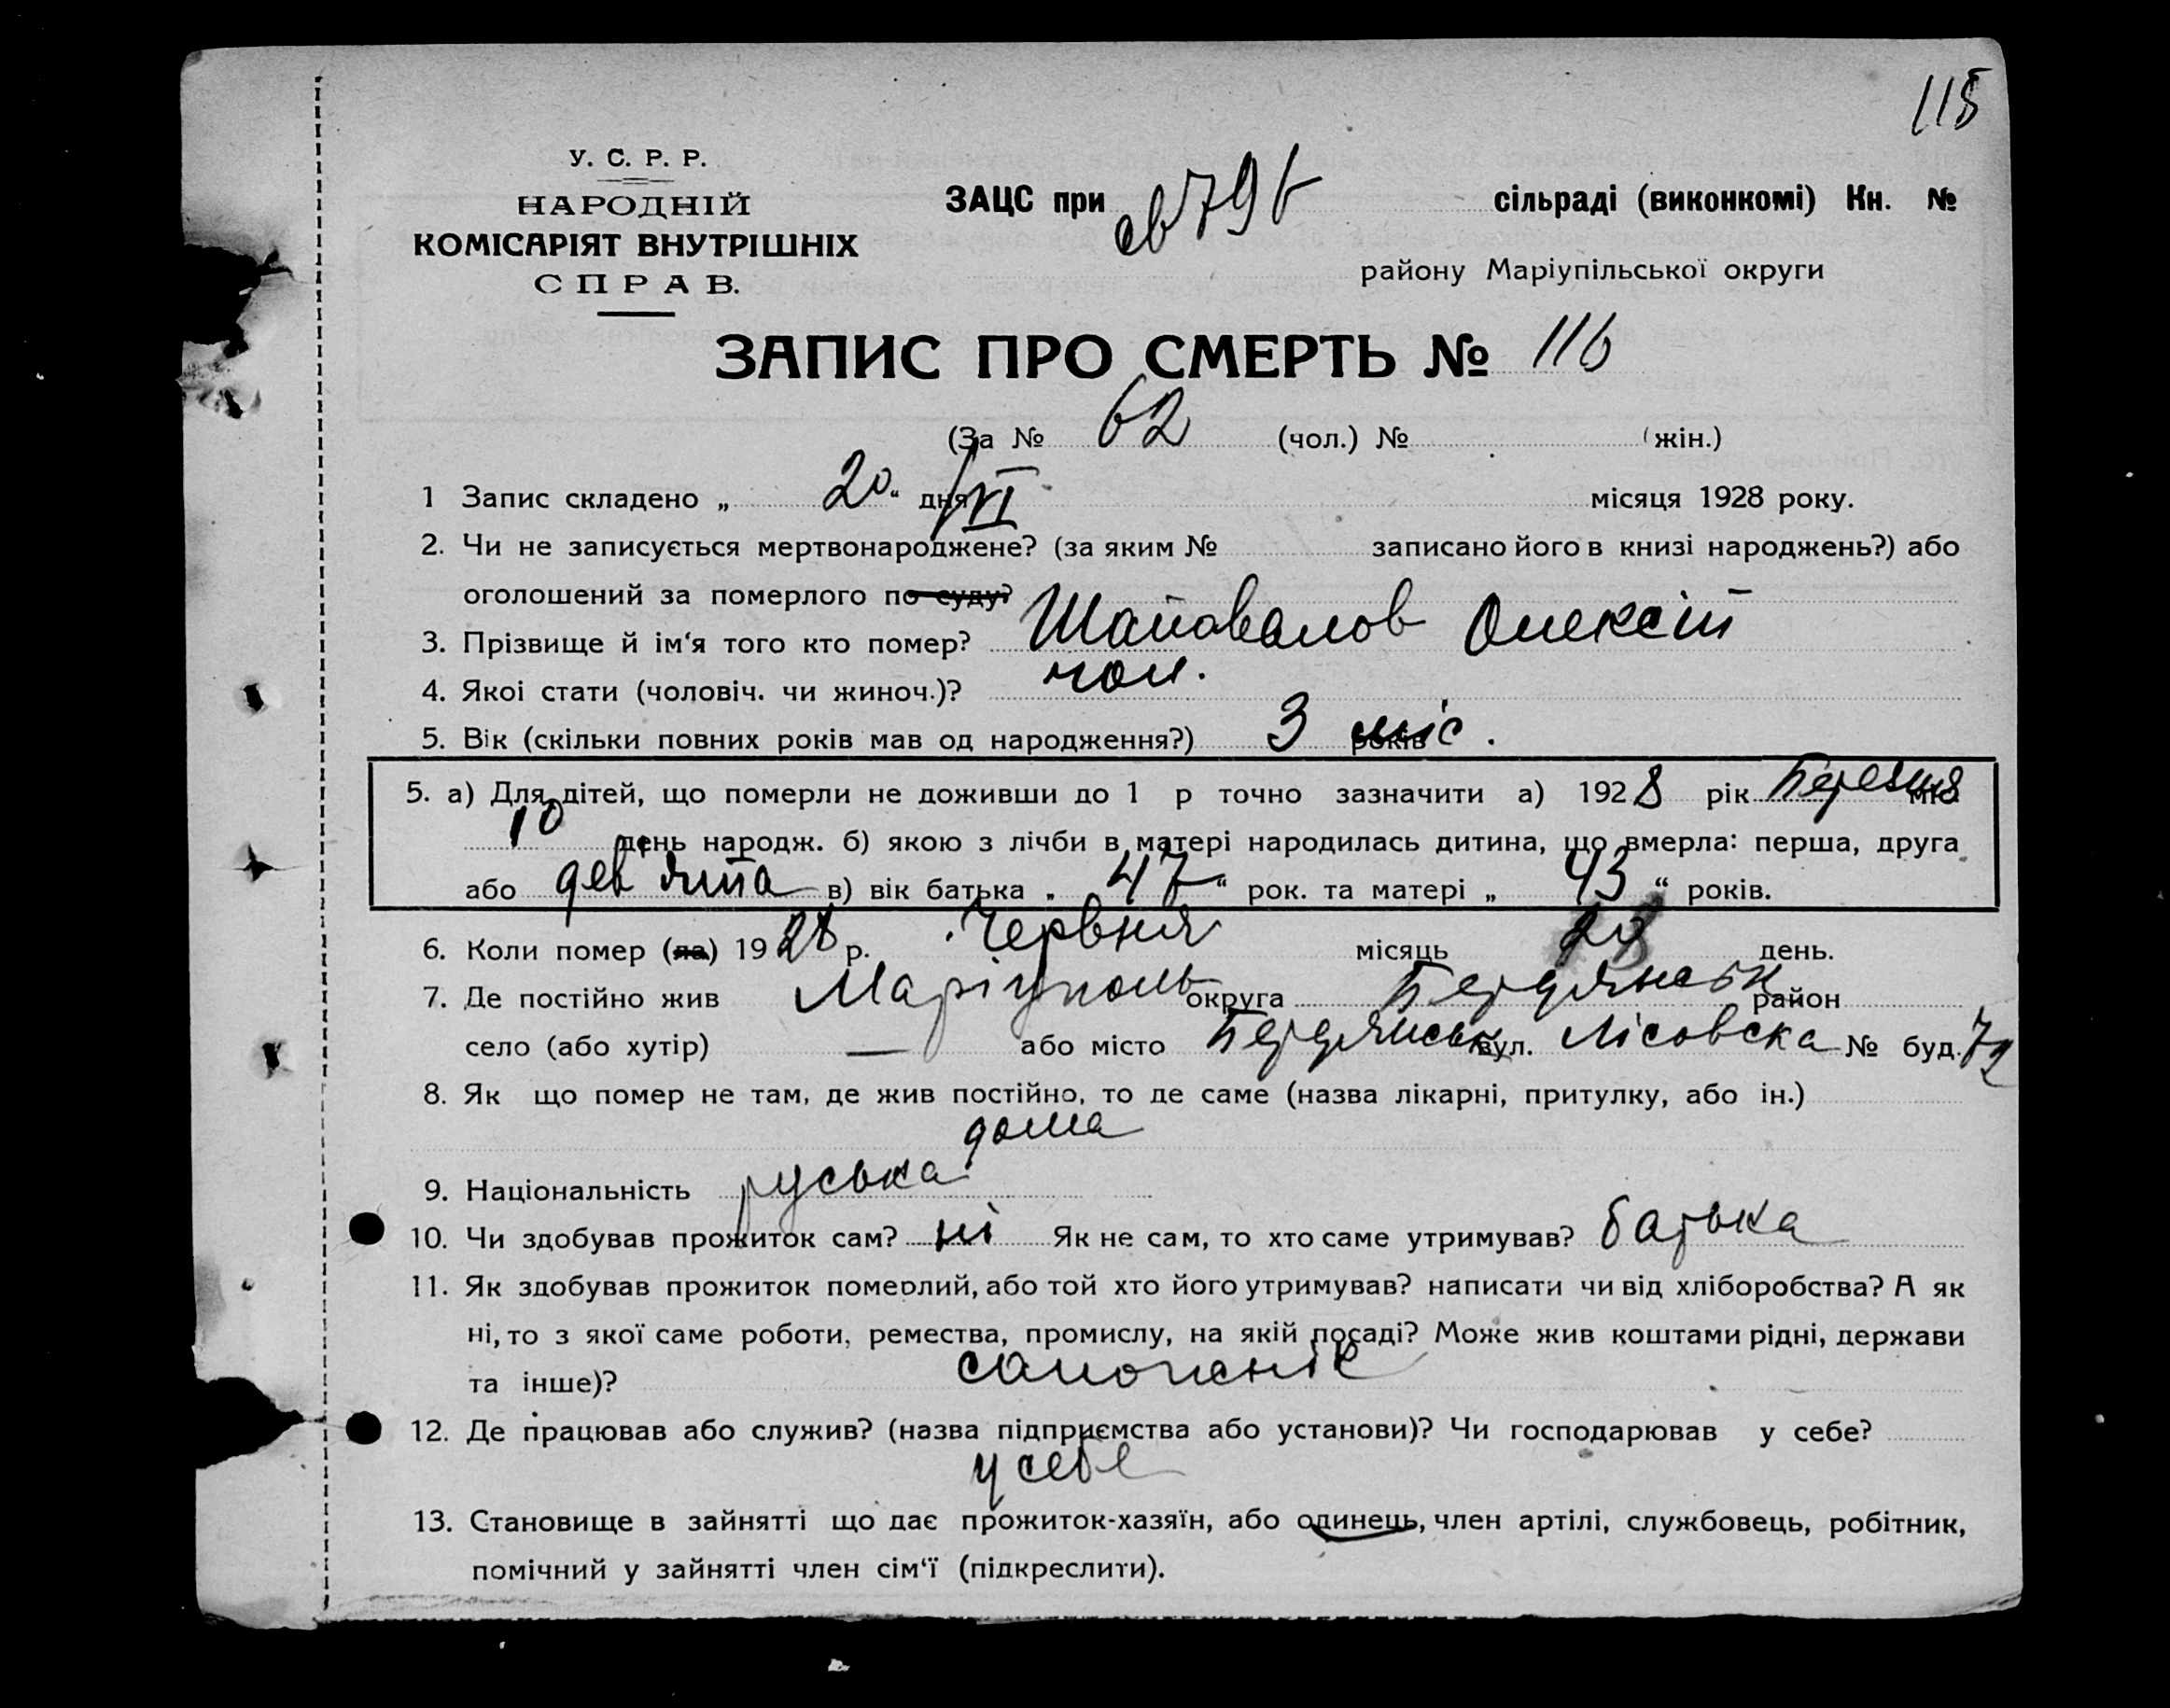 118
У. С. Р. Р.
НАРОДНІЙ
КОМІСАРІЯТ ВНУТРІШНІХ
СПРАВ.
ЗАЦС при сільраді (виконкомі) Кн. №
району Маріупільської округи
ЗАПИС ПРО СМЕРТЬ № 116
(За № 62 (чол.) № (жін.)
1 Запис складено „ 20 “ дня /VI місяця 1928 року.
2. Чи не записується мертвонароджене? (за яким № записано його в книзі народжень?) або
оголошений за померлого по суду?
3. Прізвище й ім‘я того кто помер? Шаповалов Олексій
4. Якоі стати (чоловіч. чи жиноч.)? чол.
5. Вік (скільки повних років мав од народження?) 3 років міс.
5. а) Для дітей, що померли не доживши до 1 р точно зазначити а) 1928 рік Березня міс.
10 день народж. б) якою з лічби в матері народилась дитина, що вмерла: перша, друга
або дев'ята в) вік батька „ 47 “ рок. та матері „ 43 “ років.
6. Коли помер (ла) 1928 р. Червня місяць день.
7. Де постійно жив Маріуполь округа Бердянськ район
село (або хутір) — або місто Бердянськ вул. Лісовска № буд. 72
8. Як що помер не там, де жив постійно, то де саме (назва лікарні, притулку, або ін.)
дома
9. Національність руська
10. Чи здобував прожиток сам? ні Як не сам, то хто саме утримував? батька
11. Як здобував прожиток померлий, або той хто його утримував? написати чи від хліборобства? А як
ні, то з якої саме роботи, ремества, промислу, на якій посаді? Може жив коштами рідні, держави
та інше)?
12. Де працював або служив? (назва підприємства або установи)? Чи господарював у себе?
у себе
13. Становище в зайнятті що дає прожиток-хазяїн, або одинець, член артілі, службовець, робітник,
помічний у зайнятті член сім‘ї (підкреслити).